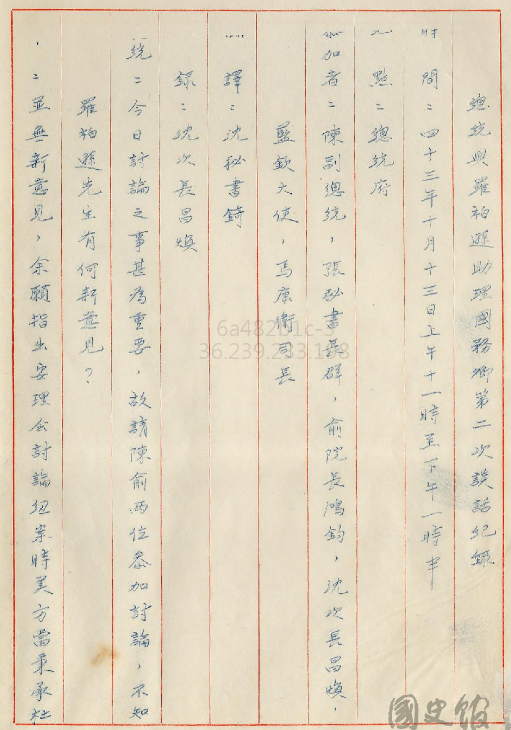 總統與羅柏遜助理國務卿第二次談話紀錄
時間：四十三年十月十三日上午十一時至下午一時半
點：總統府
加者：陳副總統，張秘書長群，俞院長鴻鈞，沈次長昌煥，
藍欽大使，馬康衛司長
譯：沈秘書錡
錄：沈次長昌煥
統：今日討論之事甚為重要，故請陳俞兩位參加討論，不知
羅柏遜先生有何新意見？
：並無新意見，余願指出安理會討論紐案時美方當秉承杜
6a48201c-3
36.239.233.198
國史館